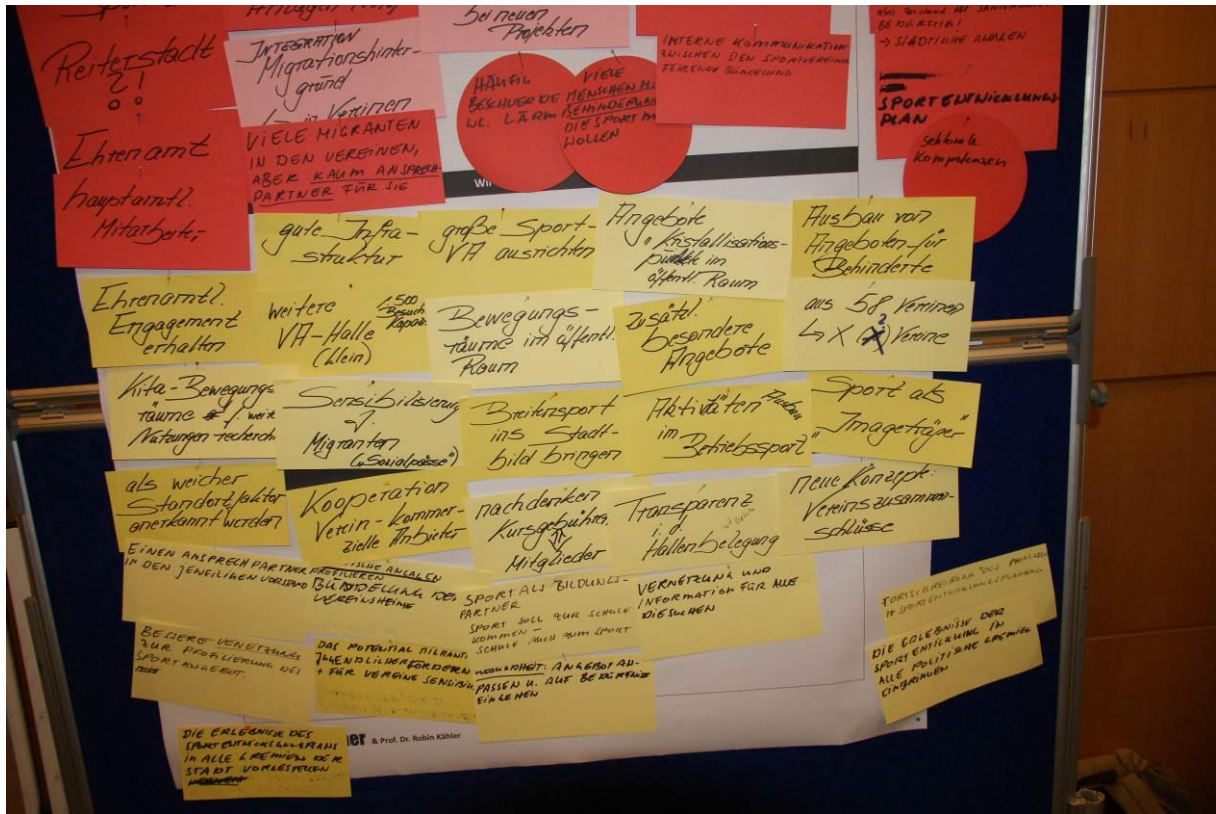 Reiterstadt
?!
Ehrenamt
hauptamtl.
Mitarbeiter
INTEGRATION
Migrationshinter-
grund
↳ in Vereinen
VIELE MIGRANTEN
IN DEN VEREINEN,
ABER KAUM ANSPRECH-
PARTNER FÜR SIE
bei neuen
Projekten
HÄUFIG
BESCHWERDE
WG. LÄRM
VIELE
MENSCHEN MI
BEHINDERUNG
DIE SPORT M
WOLLEN
INTERNE KOMMUNIKATION
ZWISCHEN DEN SPORTVEREINEN
FEHLENDE BÜNDELUNG
BEDÜRFTIG!
→ STÄDTISCHE ANLAGEN
SPORTENTWICKLUNGS-
PLAN
sektorale
Kompetenzen
Wir
gute Infra-
struktur
große Sport-
VA ausrichten
Angebote
"Kristallisations-
punkte im
öffentl. Raum
Ausbau von
Angeboten für
Behinderte
Ehrenamtl.
Engagement
erhalten
weitere
VA-Halle
(klein)
1.500
Besuch
Kapaz.
Bewegungs-
räume im öffentl.
Raum
Zusätzl.
besondere
Angebote
aus 58 Vereinen
↳ X (X)? Vereine
Kita-Bewegungs
räume
f. weit
Nutzungen
Sensibilisierung
f.
Migranten
("Sozialpässe")
Breitensport
ins Stadt-
bild bringen
Aktivitäten
im
"Betriebssport"
Sport als
"Imageträger"
als weicher
Standortfaktor
anerkannt werden
Kooperation
Verein - kommer-
zielle Anbieter
nachdenken
Kursgebühren
⇅
Mitglieder
Transparenz
i. d.
Hallenbelegung
neue Konzepte:
Vereinszusammen-
schlüsse
EINEN ANSPRECHPARTNER
IN DEN JEWEILIGEN VORSTAND
ISCHE ANLAGEN
PROFILIEREN
BÜNDELUNG DER
VEREINSHEIME
SPORT ALS BILDUNGS-
PARTNER
SPORT SOLL ZUR SCHULE
KOMMEN -
SCHULE AUCH ZUM SPORT
VERNETZUNG UND
INFORMATION FÜR ALLE
DIE SUCHEN
FORTSCHREIBUNG DES PROZESSES
SPORTENTWICKLUNGSPLANUNG
BESSERE VERNETZUNG
ZUR PROFILIERUNG DES
SPORTANGEBOT.
DAS POTENTIAL MIGRANT.
JUGENDLICHER FÖRDERN
+ FÜR VEREINE SENSIBIL
ANGEBOT AN-
PASSEN U. AUF BEDÜRFNISSE
EINGEHEN
DIE ERGEBNISSE DER
SPORTENTWICKLUNG IN
ALLE POLITISCHE GREMIEN
EINBRINGEN
DIE ERGEBNISSE DES
SPORTENTWICKLUNGSPLANS
IN ALLE GREMIEN DER
STADT VORGESTELLEN
ner & Prof. Dr. Robin Kähler